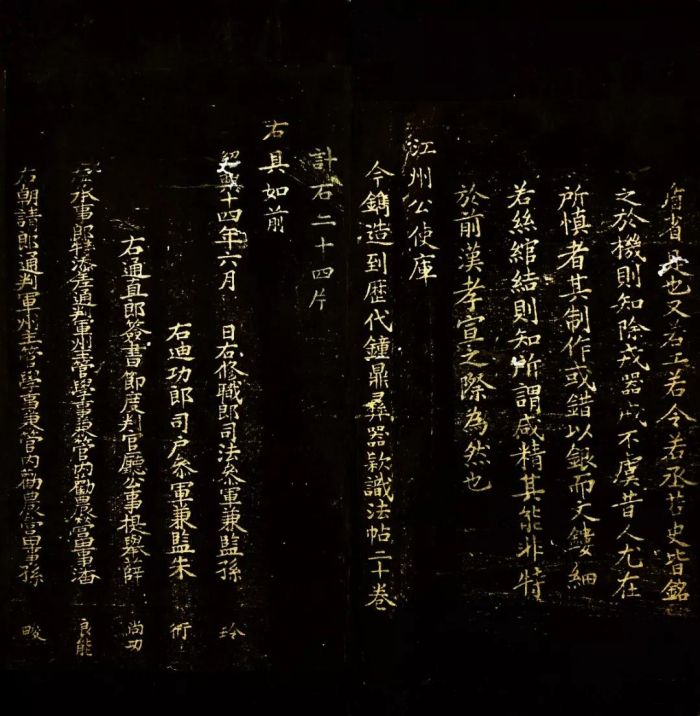 省也又若工若令若丞若史皆銘
之於機則知除戎器戒不虞昔人尤在
所慎者其制作或錯以銀而文鏤細
若絲綰結則知所謂咸精其能非特
於前漢孝宣之際為然也
江州公使庫
今鐫造到歴代鐘鼎彝器款識法帖二十卷
計石二十四片
右具如前
紹興十四年六月 日右修職郎司法叅軍兼監孫 玲
右迪功郎司户叅軍兼監朱 術
右通直郎簽書節度判官廳公事提舉薛 尚功
承事郎添差通判軍州主管學事兼管内勸農營田事潘 良能
右朝請郎通判軍州主管學事兼管内勸農營田事孫 畯